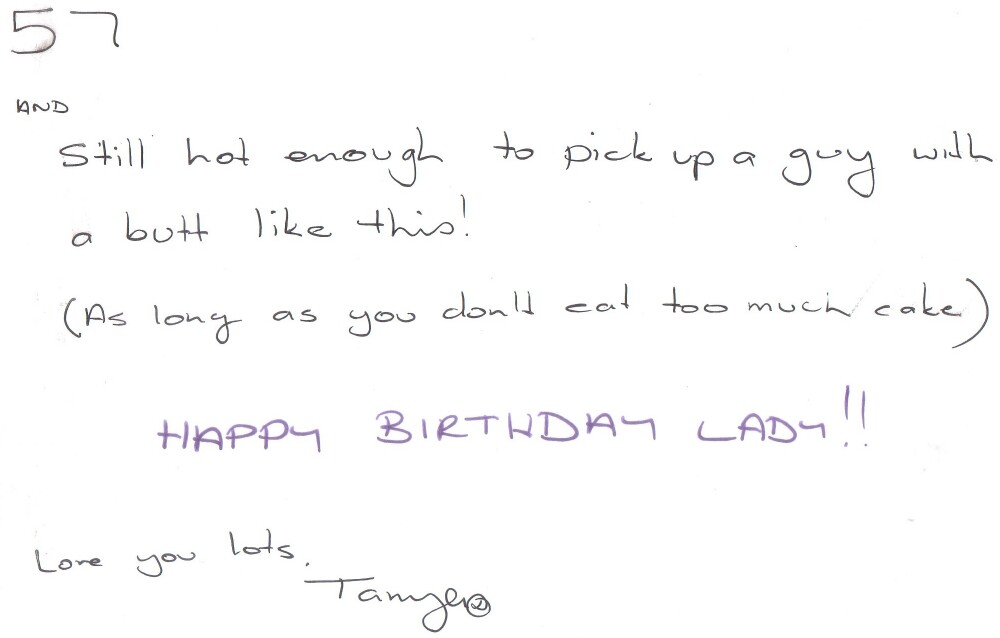 57
AND
Still hot enough to pick up a guy with
a butt like this!
(As long as you don't eat too much cake)
HAPPY BIRTHDAY LADY!!
Love you lots.